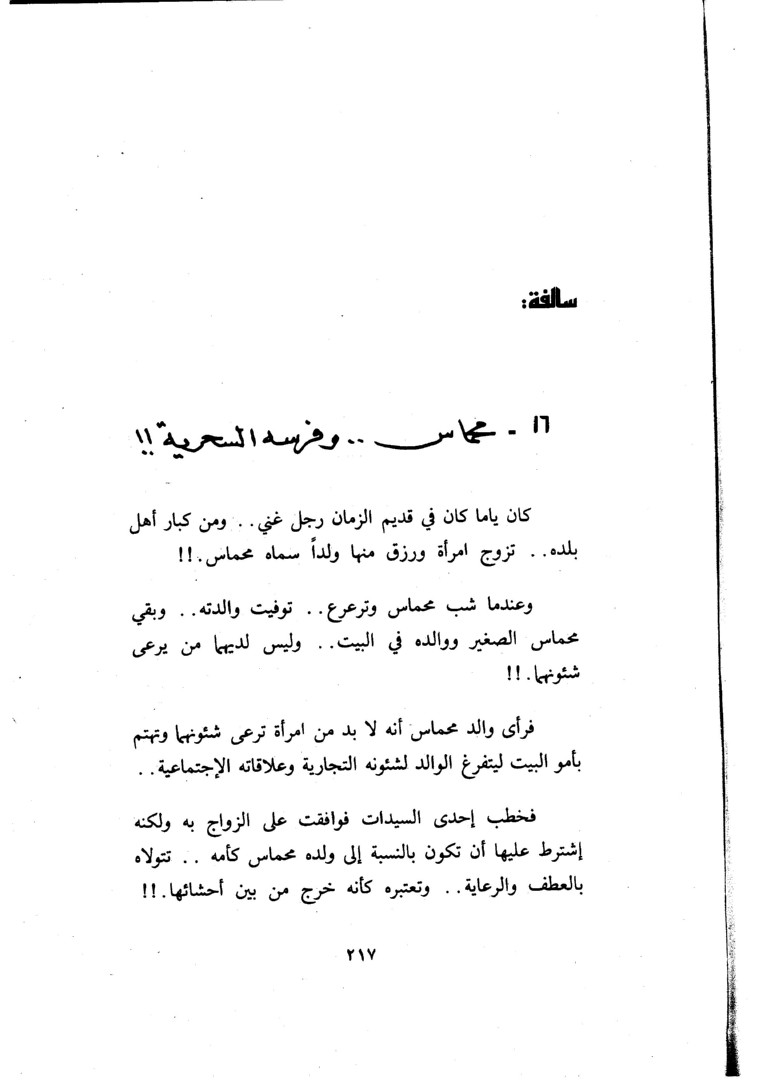 سالفة:
١٦ - محماس .. وفرسه السحرية !!
كان ياما كان في قديم الزمان رجل غني.. ومن كبار أهل
بلده.. تزوج امرأة ورزق منها ولداً سماه محماس.!!
وعندما شب محماس وترعرع.. توفيت والدته.. وبقي
محماس الصغير ووالده في البيت.. وليس لديهما من يرعى
شئونهما.!!
فرأى والد محماس أنه لا بد من امرأة ترعى شئونهما وتهتم
بأمو البيت ليتفرغ الوالد لشئونه التجارية وعلاقاته الإجتماعية..
فخطب إحدى السيدات فوافقت على الزواج به ولكنه
إشترط عليها أن تكون بالنسبة إلى ولده محماس كأمه .. تتولاه
بالعطف والرعاية.. وتعتبره كأنه خرج من بين أحشائها.!!
٢١٧